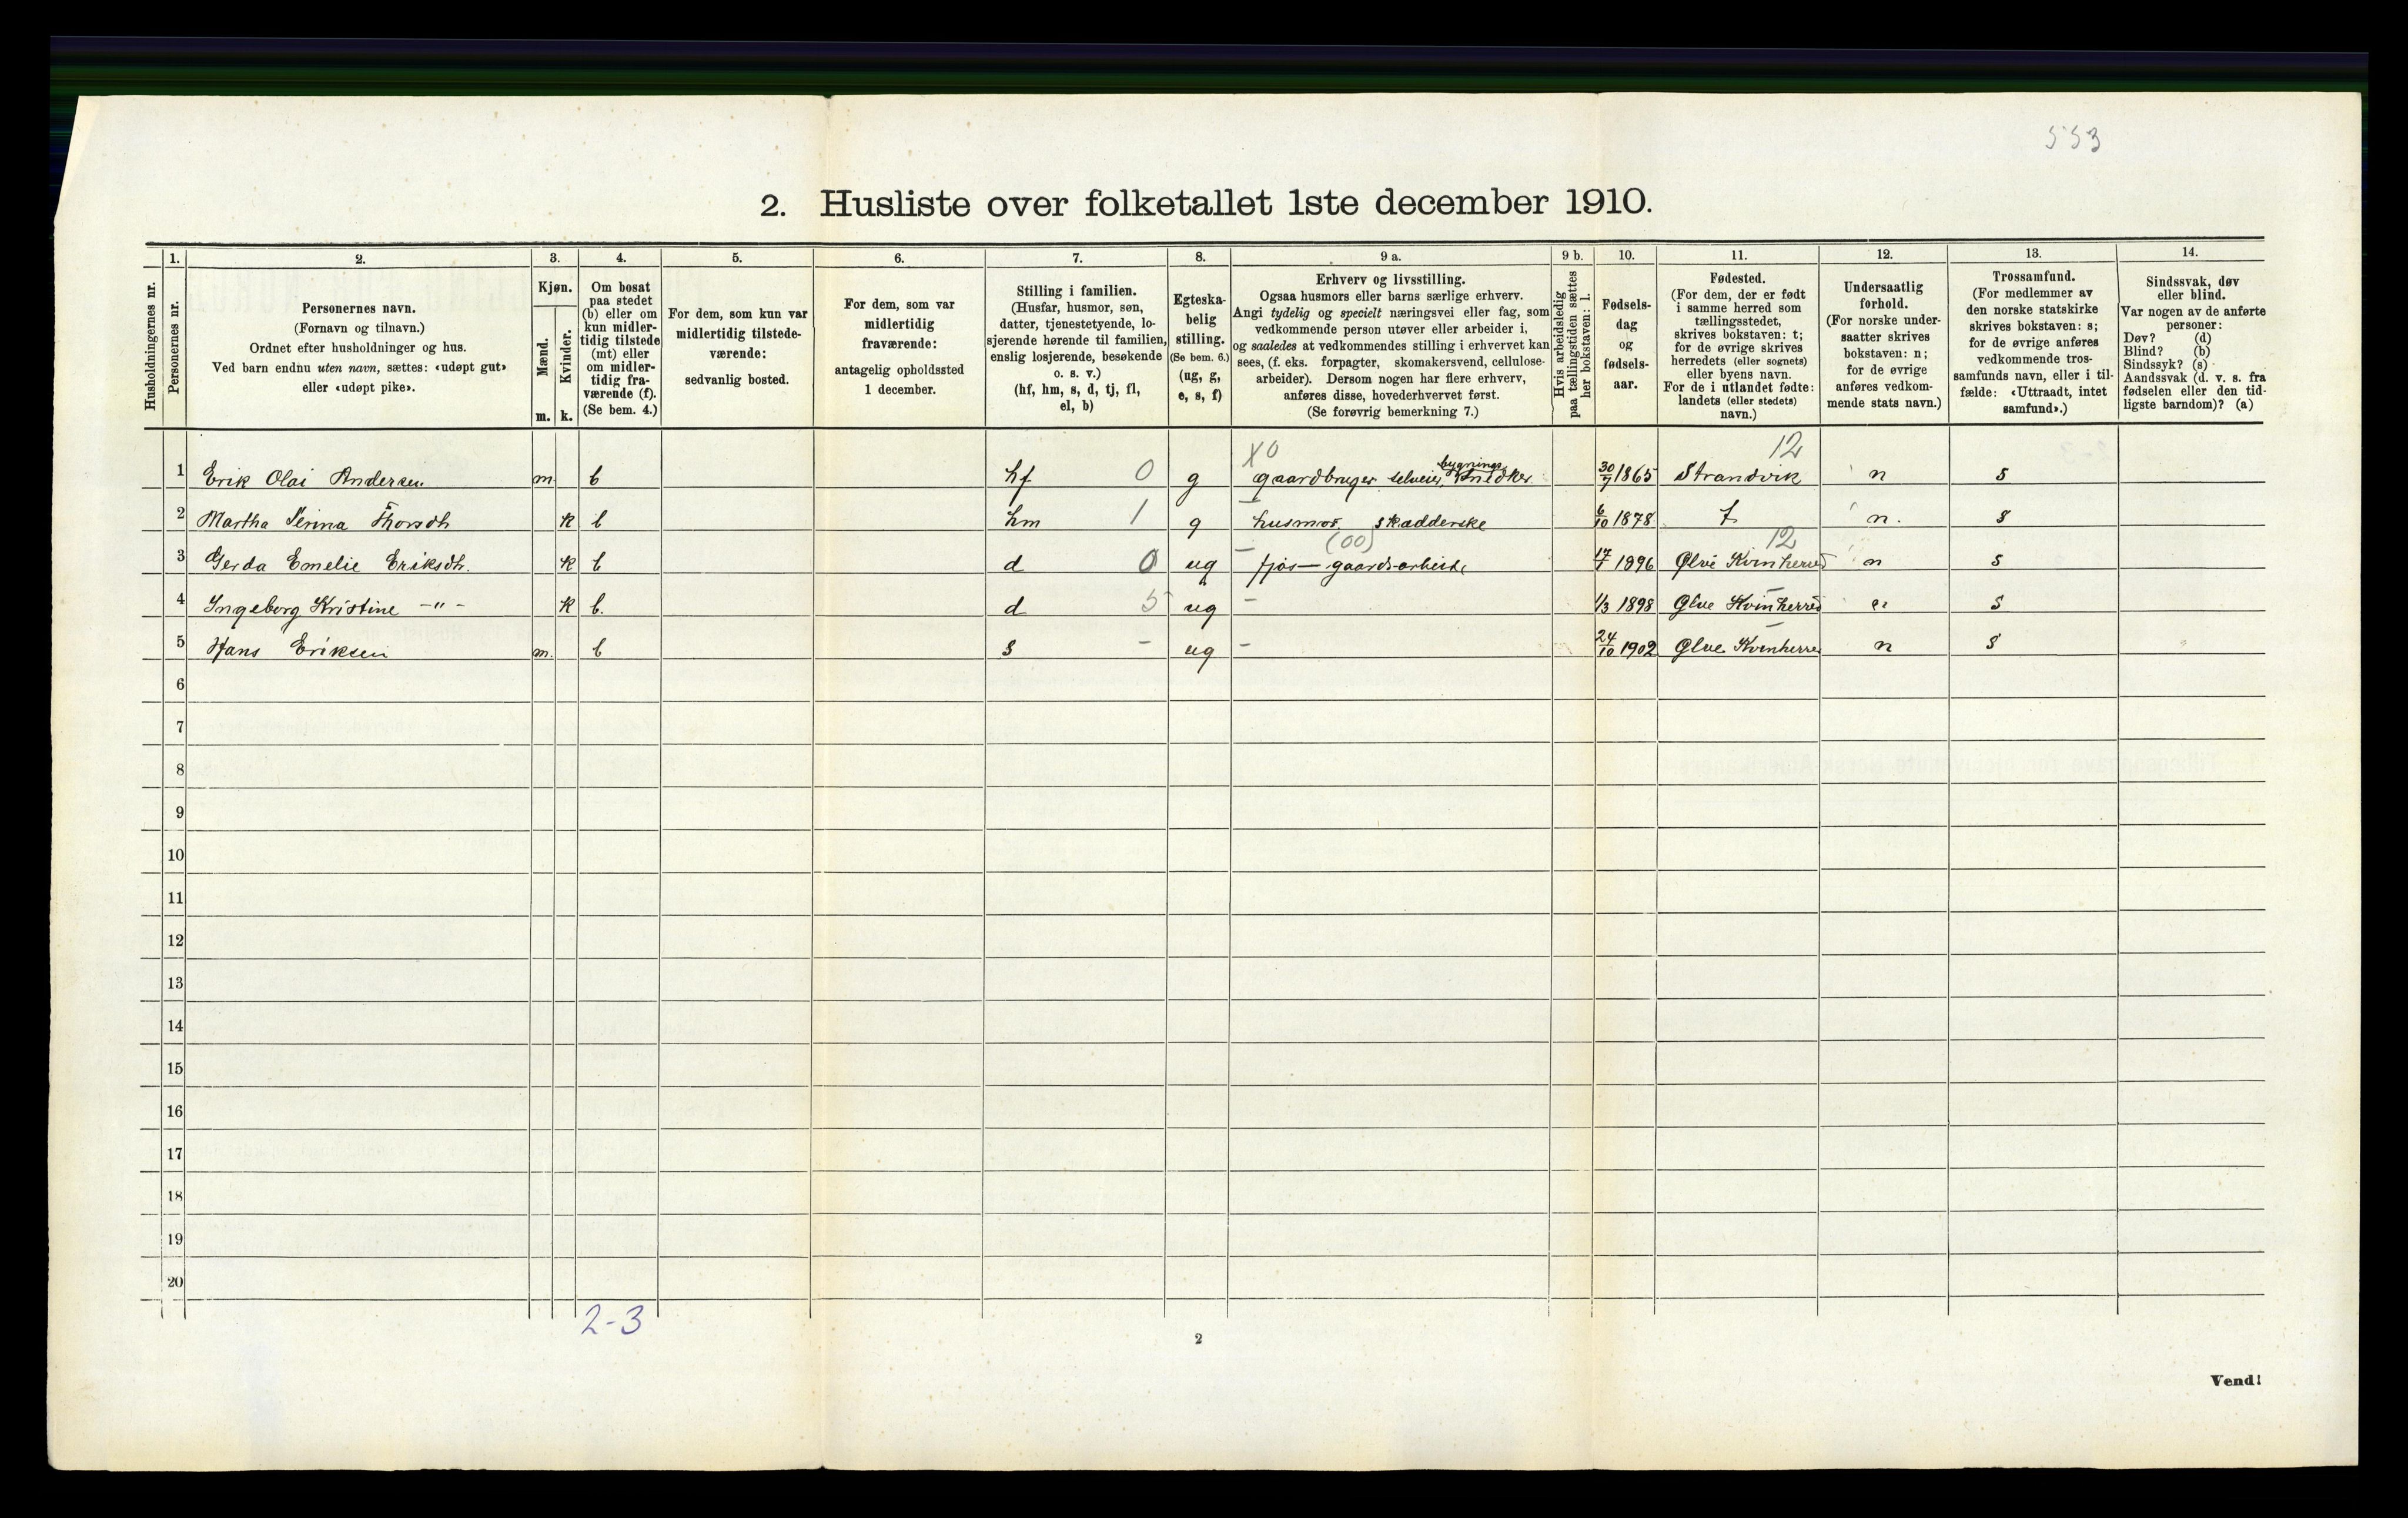 553
2. Husliste over folketallet 1ste december 1910.
Husholdningernes nr.
1.
Personernes nr.
2.
Personernes navn.
(Fornavn og tilnavn.)
Ordnet efter husholdninger og hus.
Ved barn endnu uten navn, sættes: «udøpt gut»
eller «udøpt pike».
3.
Kjøn.
Mænd.
Kvinder.
m. k.
4.
Om bosat
paa stedet
(b) eller om
kun midler-
tidig tilstede
(mt) eller
om midler-
tidig fra-
værende (f).
(Se bem. 4.)
5.
For dem, som kun var
midlertidig tilstede-
værende:
sedvanlig bosted.
6.
For dem, som var
midlertidig
fraværende:
antagelig opholdssted
1 december.
7.
Stilling i familien.
(Husfar, husmor, søn,
datter, tjenestetyende, lo-
sjerende hørende til familien,
enslig losjerende, besøkende
o. s. v.)
(hf, hm, s, d, tj, fl,
el, b)
8.
Egteska-
belig
stilling.
(Se bem. 6.)
(ug, g,
e, s, f)
9 a.
Erhverv og livsstilling.
Ogsaa husmors eller barns særlige erhverv.
Angi tydelig og specielt næringsvei eller fag, som
vedkommende person utøver eller arbeider i,
og saaledes at vedkommendes stilling i erhvervet kan
sees, (f. eks. forpagter, skomakersvend, cellulose-
arbeider). Dersom nogen har flere erhverv,
anføres disse, hovederhvervet først.
(Se forøvrig bemerkning 7.)
9 b.
Hvis arbeidsledig
paa tællingstiden sættes
her bokstaven: l.
10.
Fødsels-
dag
og
fødsels-
aar.
11.
Fødested.
(For dem, der er født
i samme herred som
tællingsstedet,
skrives bokstaven: t;
for de øvrige skrives
herredets (eller sognets)
eller byens navn.
For de i utlandet fødte:
landets (eller stedets)
navn.)
12.
Undersaatlig
forhold.
(For norske under-
saatter skrives
bokstaven: n;
for de øvrige
anføres vedkom-
mende stats navn.)
13.
Trossamfund.
(For medlemmer av
den norske statskirke
skrives bokstaven: s;
for de øvrige anføres
vedkommende tros-
samfunds navn, eller i til-
fælde: «Uttraadt, intet
samfund».)
14.
Sindssvak, døv
eller blind.
Var nogen av de anførte
personer:
Døv? (d)
Blind? (b)
Sindssyk? (s)
Aandssvak (d. v. s. fra
fødselen eller den tid-
ligste barndom)? (a)
X0 12
bygnings
1 Erik Olai Andersen m b hf 0 g gaardbruger selveier, snedker 30/7 1865 Strandvik n s
2 Martha Serina Thorsdh k b hm 1 g husmor skædderske 6/10 1878 t n. s
(00) 12
3 Gerda Emelie Eriksdh. k b d 0 ug – fjøs– gaardsarbeide 1896 Ølve Kvinherred n s
4 Ingeborg Kristine –"– k b. d 5 ug – 1/3 1898 Ølve Kvinherred n s
5 Hans Eriksen m. b s – ug – 24/10 1902 Ølve Kvinherre n s
6
7
8
9
10
11
12
13
14
15
16
17
18
19
20
2-3
2
Vend!